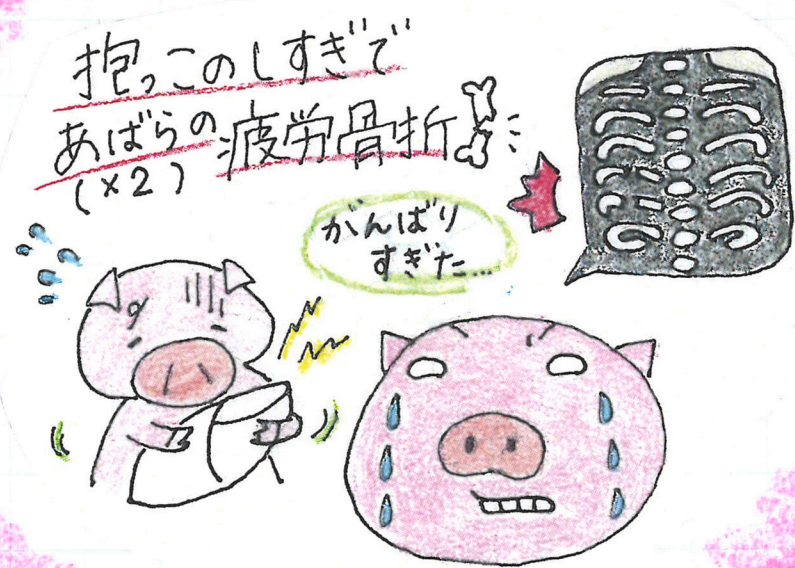 抱っこのしすぎで
あばらの疲労骨折
(×2)
がんばり
すぎた...